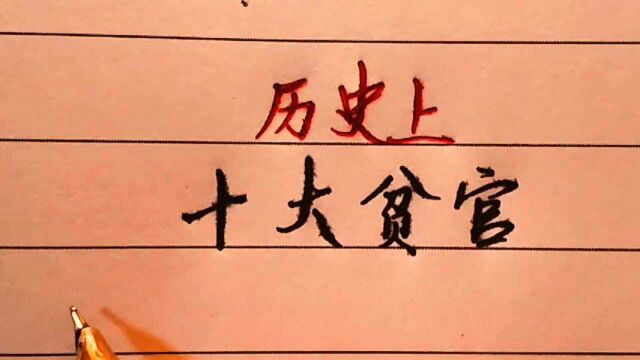 历史上
十大贫官